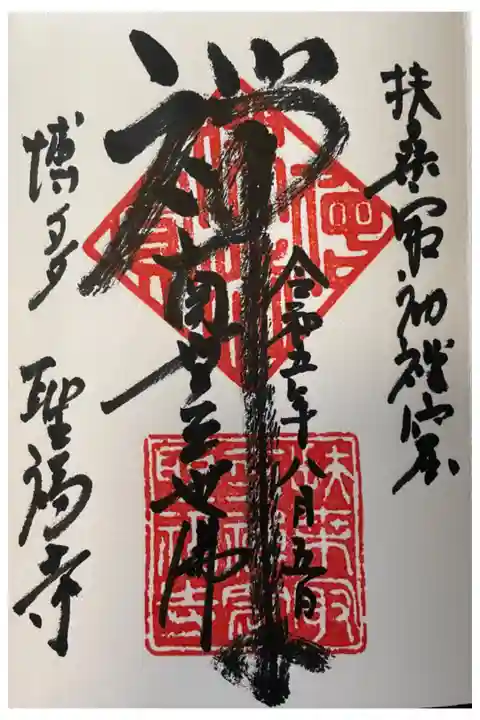 扶桑最初禅窟
禅
令和五年八月五日
南無三世佛
博多 聖福寺